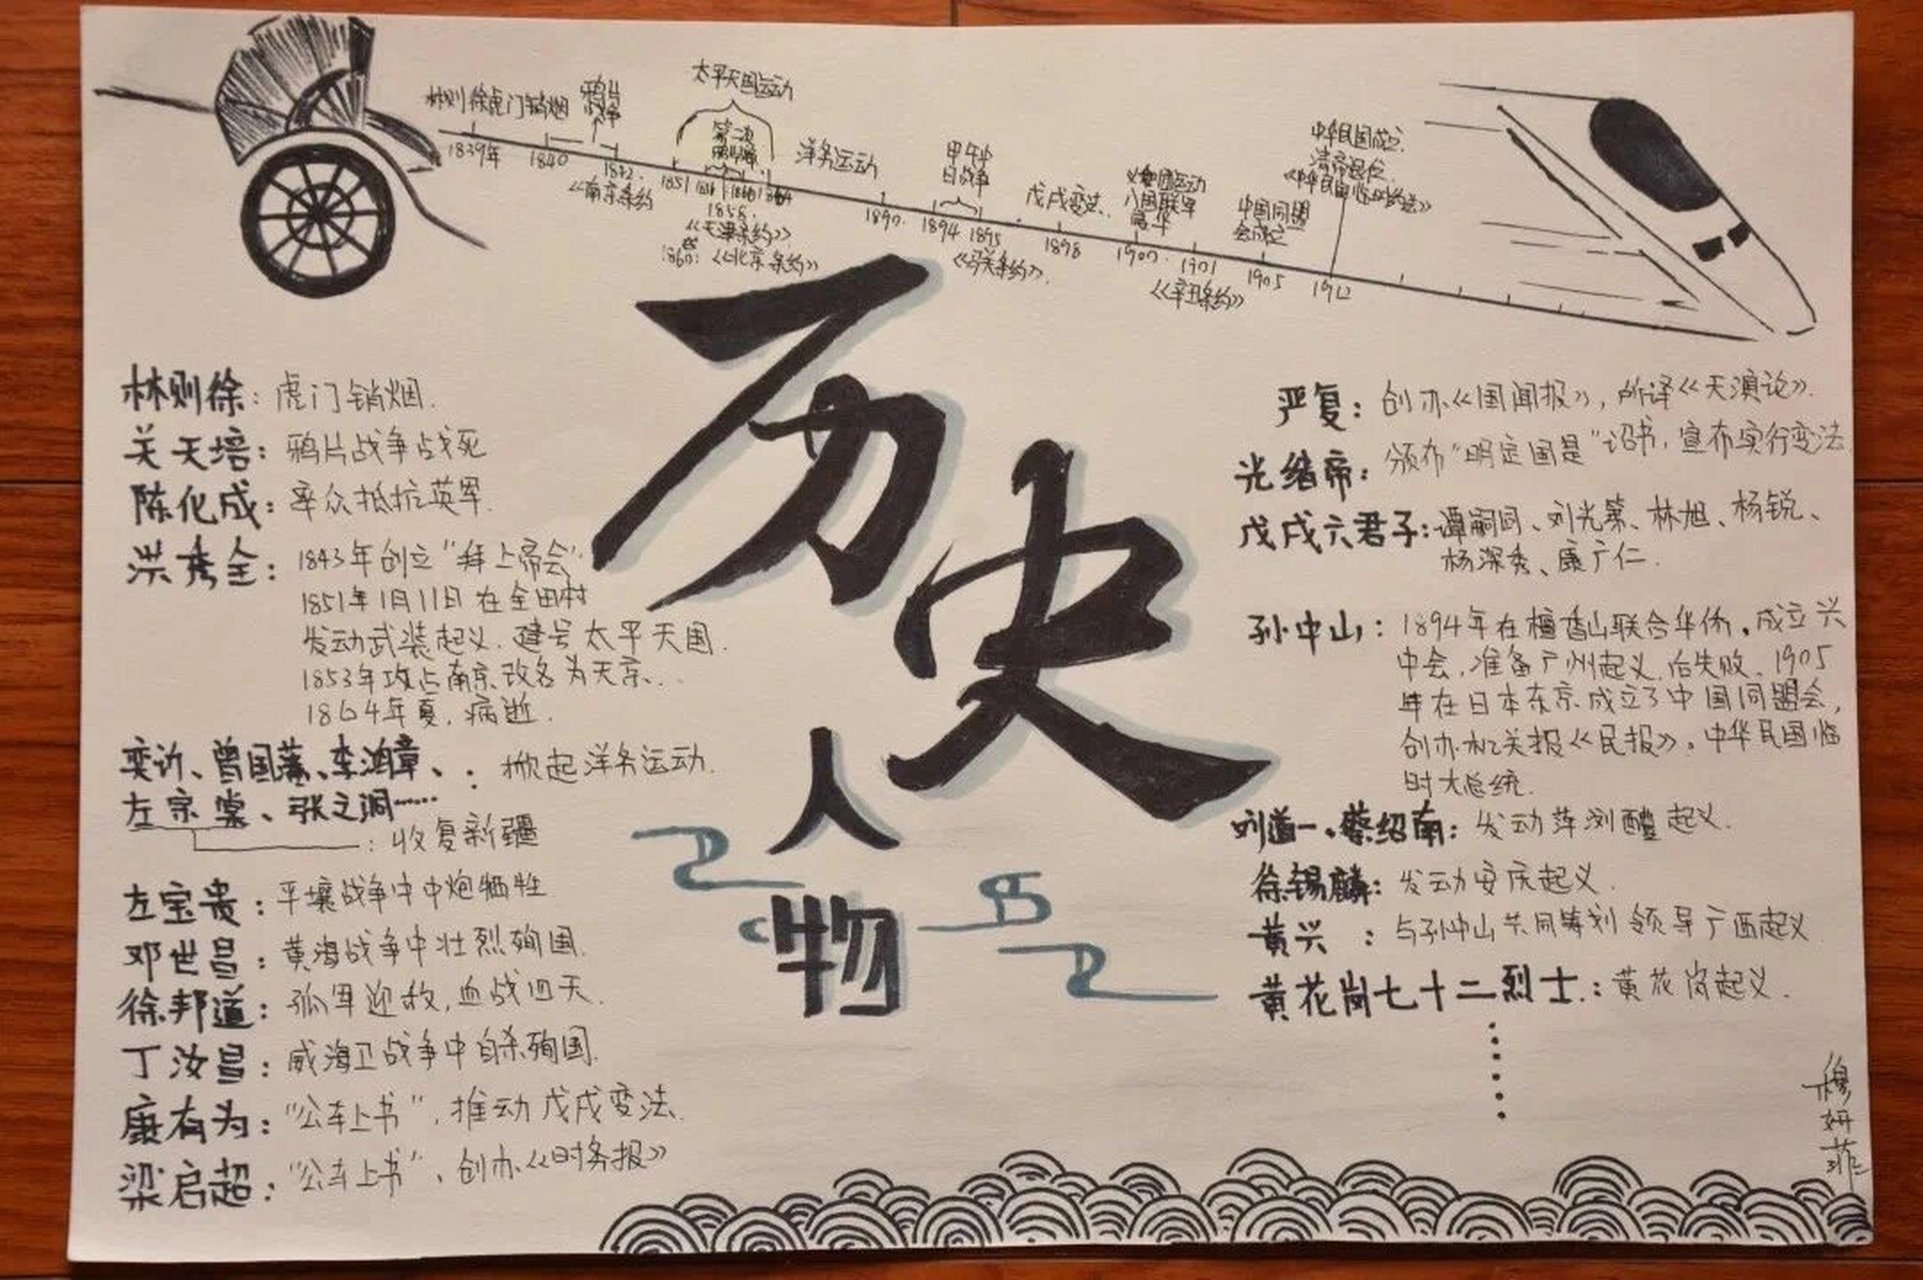 太平天国运动
林则徐虎门销烟
鸦片
战争
第二次
鸦片战争
洋务运动
甲午中
日战争
戊戌变法
义和团运动
八国联军
侵华
中国同盟
会成立
中华民国成立
清帝退位
《中华民国临时约法》
1839年
1840
1842
《南京条约》
1851
1856
1860
1864
1858
《天津条约》
1860
《北京条约》
1890
1894
1895
《马关条约》
1898
1900
1901
《辛丑条约》
1905
1912
历史
人物
林则徐：虎门销烟.
关天培：鸦片战争战死
陈化成：率众抵抗英军.
洪秀全：1843年创立“拜上帝会”.
1851年1月11日在金田村
发动武装起义.建号太平天国.
1853年攻占南京.改名为天京..
1864年夏.病逝.
奕䜣、曾国藩、李鸿章、
左宗棠、张之洞……：掀起洋务运动.
：收复新疆
左宝贵：平壤战争中中炮牺牲
邓世昌：黄海战争中壮烈殉国.
徐邦道：孤军迎敌,血战四天.
丁汝昌：威海卫战争中自杀殉国.
康有为：“公车上书”,推动戊戌变法.
梁启超：“公车上书”、创办《时务报》
严复：创办《国闻报》,所译《天演论》.
光绪帝：颁布“明定国是”诏书,宣布实行变法
戊戌六君子：谭嗣同、刘光第、林旭、杨锐、
杨深秀、康广仁.
孙中山：1894年在檀香山联合华侨,成立兴
中会,准备广州起义.后失败.1905
年在日本东京成立了中国同盟会,
创办机关报《民报》.中华民国临
时大总统.
刘道一、蔡绍南：发动萍浏醴起义.
徐锡麟：发动安庆起义.
黄兴：与孙中山共同筹划领导广西起义
黄花岗七十二烈士：黄花岗起义.
……
穆妍菲